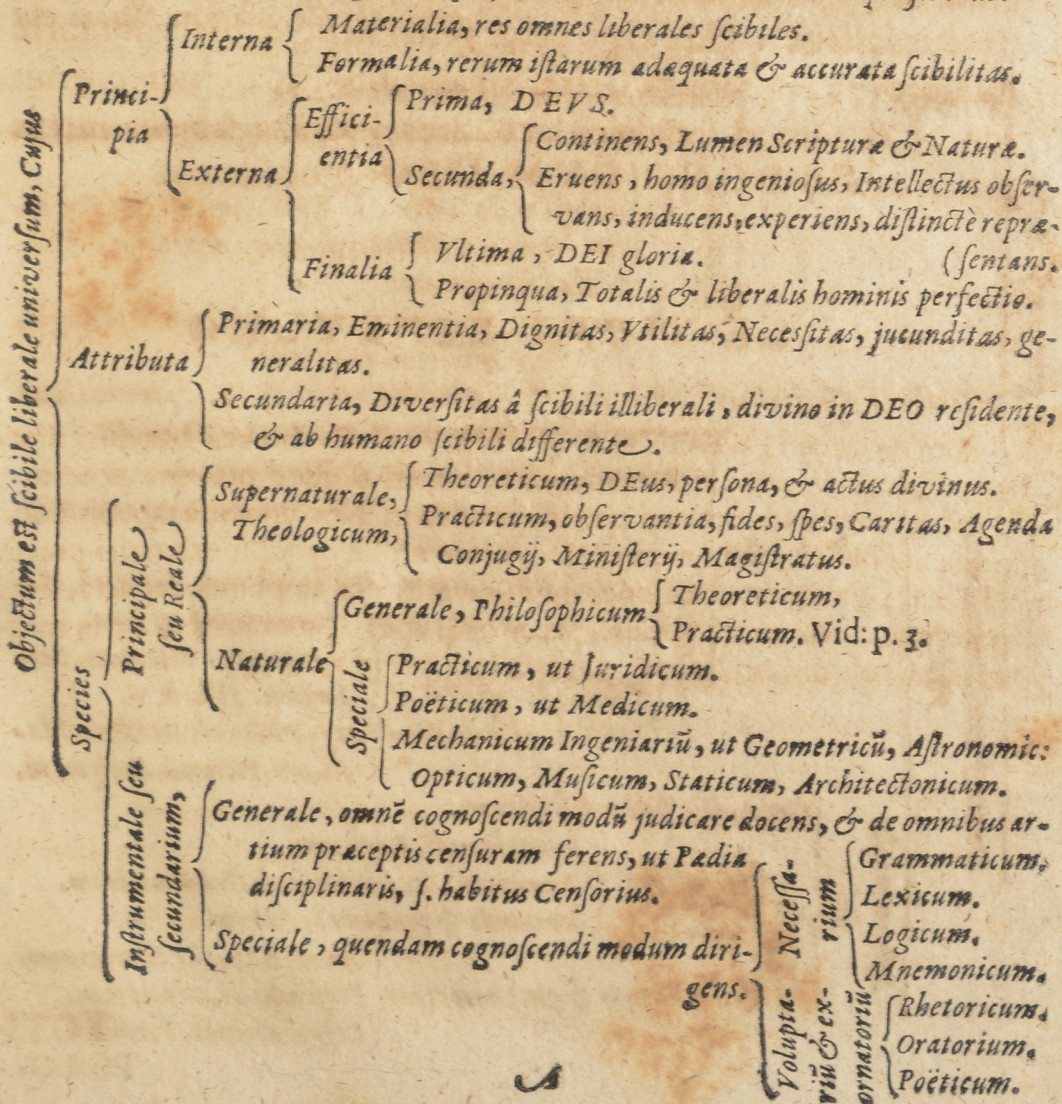 Objectum est scibile liberale universum, Cujus
Princi-
pia
Interna
Materialia, res omnes liberales scibiles.
Formalia, rerum istarum adæquata & accurata scibilitas.
Externa
Effici-
entia
Prima, DEVS.
Secunda,
Continens, Lumen Scripturæ & Naturæ.
Eruens, homo ingeniosus, Intellectus obser-
vans, inducens, experiens, distinctè repræ-
(sentans.
Finalia
Vltima, DEI gloria.
Propinqua, Totalis & liberalis hominis perfectio.
Attributa
Primaria, Eminentia, Dignitas, Vtilitas, Necessitas, jucunditas, ge-
neralitas.
Secundaria, Diversitas â scibili illiberali, divino in DEO residente,
& ab humano scibili differente.
Species
Principale
seu Reale
Supernaturale,
Theologicum,
Theoreticum, DEus, persona, & actus divinus.
Practicum, observantia, fides, spes, Caritas, Agenda
Conjugij, Ministerij, Magistratus.
Naturale
Generale, Philosophicum
Theoreticum,
Practicum. Vid: p. 3.
Speciale
Practicum, ut Juridicum.
Poëticum, ut Medicum.
Mechanicum Ingeniariũ, ut Geometricũ, Astronomic:
Opticum, Musicum, Staticum, Architectonicum.
Instrumentale seu
secundarium,
Generale, omnẽ cognoscendi modũ judicare docens, & de omnibus ar-
tium præceptis censuram ferens, ut Pædia
disciplinaris, s. habitus Censorius.
Speciale, quendam cognoscendi modum diri-
gens.
Necessa-
rium
Grammaticum,
Lexicum.
Logicum.
Mnemonicum.
Volupta-
riũ & ex-
ornatoriũ
Rhetoricum.
Oratorium.
Poëticum.